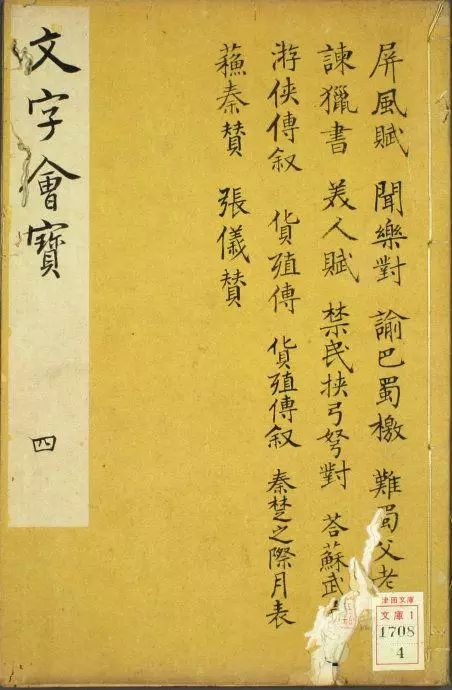 文字會寶
四
屏風賦 聞樂對 諭巴蜀檄 難蜀父老
諫獵書 美人賦 禁民挾弓弩對 荅蘇武
游俠傳叙 貨殖傳 貨殖傳叙 秦楚之際月表
蘓秦賛 張儀賛
津田文庫
文庫1
1708
4